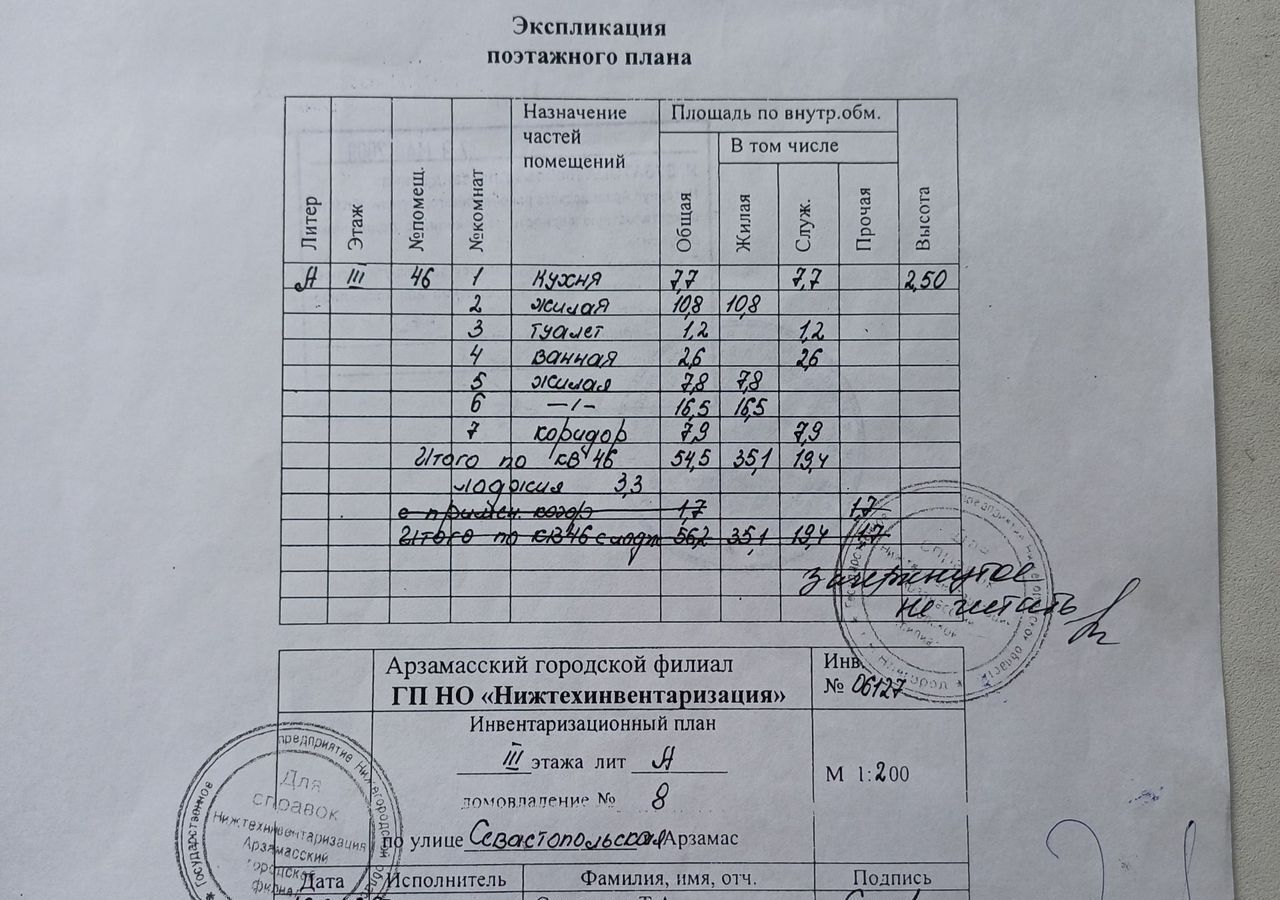 Экспликация
поэтажного плана
Литер Этаж №помещ. №комнат Назначение частей помещений Площадь по внутр.обм. Высота
В том числе
Общая Жилая Служ. Прочая
А III 46 1 кухня 7,7 7,7 2,50
2 жилая 10,8 10,8
3 туалет 1,2 1,2
4 ванная 2,6 2,6
5 жилая 7,8 7,8
6 —/— 16,5 16,5
7 коридор 7,9 7,9
Итого по кв 46 54,5 35,1 19,4
лоджия 3,3
с примен. коэф 1,7 1,7
Итого по кв 46 с лодж 56,2 35,1 19,4 1,7
зачеркнутое
не читать
Арзамасский городской филиал
ГП НО «Нижтехинвентаризация»
Инв.
№ 06127
Инвентаризационный план
III этажа лит А
М 1:200
домовладение № 8
по улице Севастопольская Арзамас
Дата Исполнитель Фамилия, имя, отч. Подпись
Государственное предприятие Нижегородской
Для
справок
Нижтехинвентаризация
Арзамасский
городской
филиал